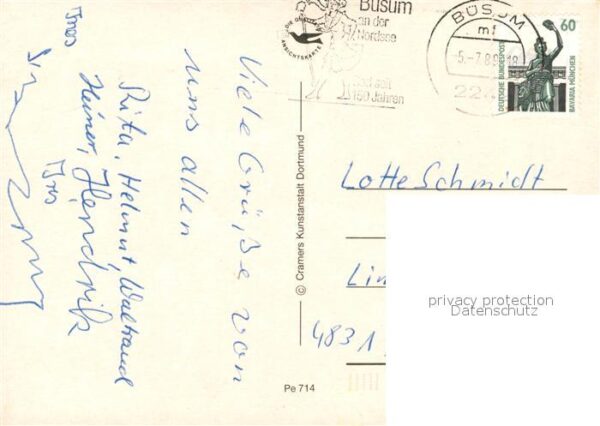 Viele Grüße von
uns allen
Rita, Helmut, Waltraud
Heiner, Hendrik
Ines
Ines
© Cramers Kunstanstalt Dortmund
Pe 714
DIE GUTE
ANSICHTSKARTE
Büsum
an der
Nordsee
Bad seit
150 Jahren
BÜSUM
mf
5.-7.8
224
60
DEUTSCHE BUNDESPOST
BAVARIA MÜNCHEN
Lotte Schmidt
Lin
4831
privacy protection
Datenschutz